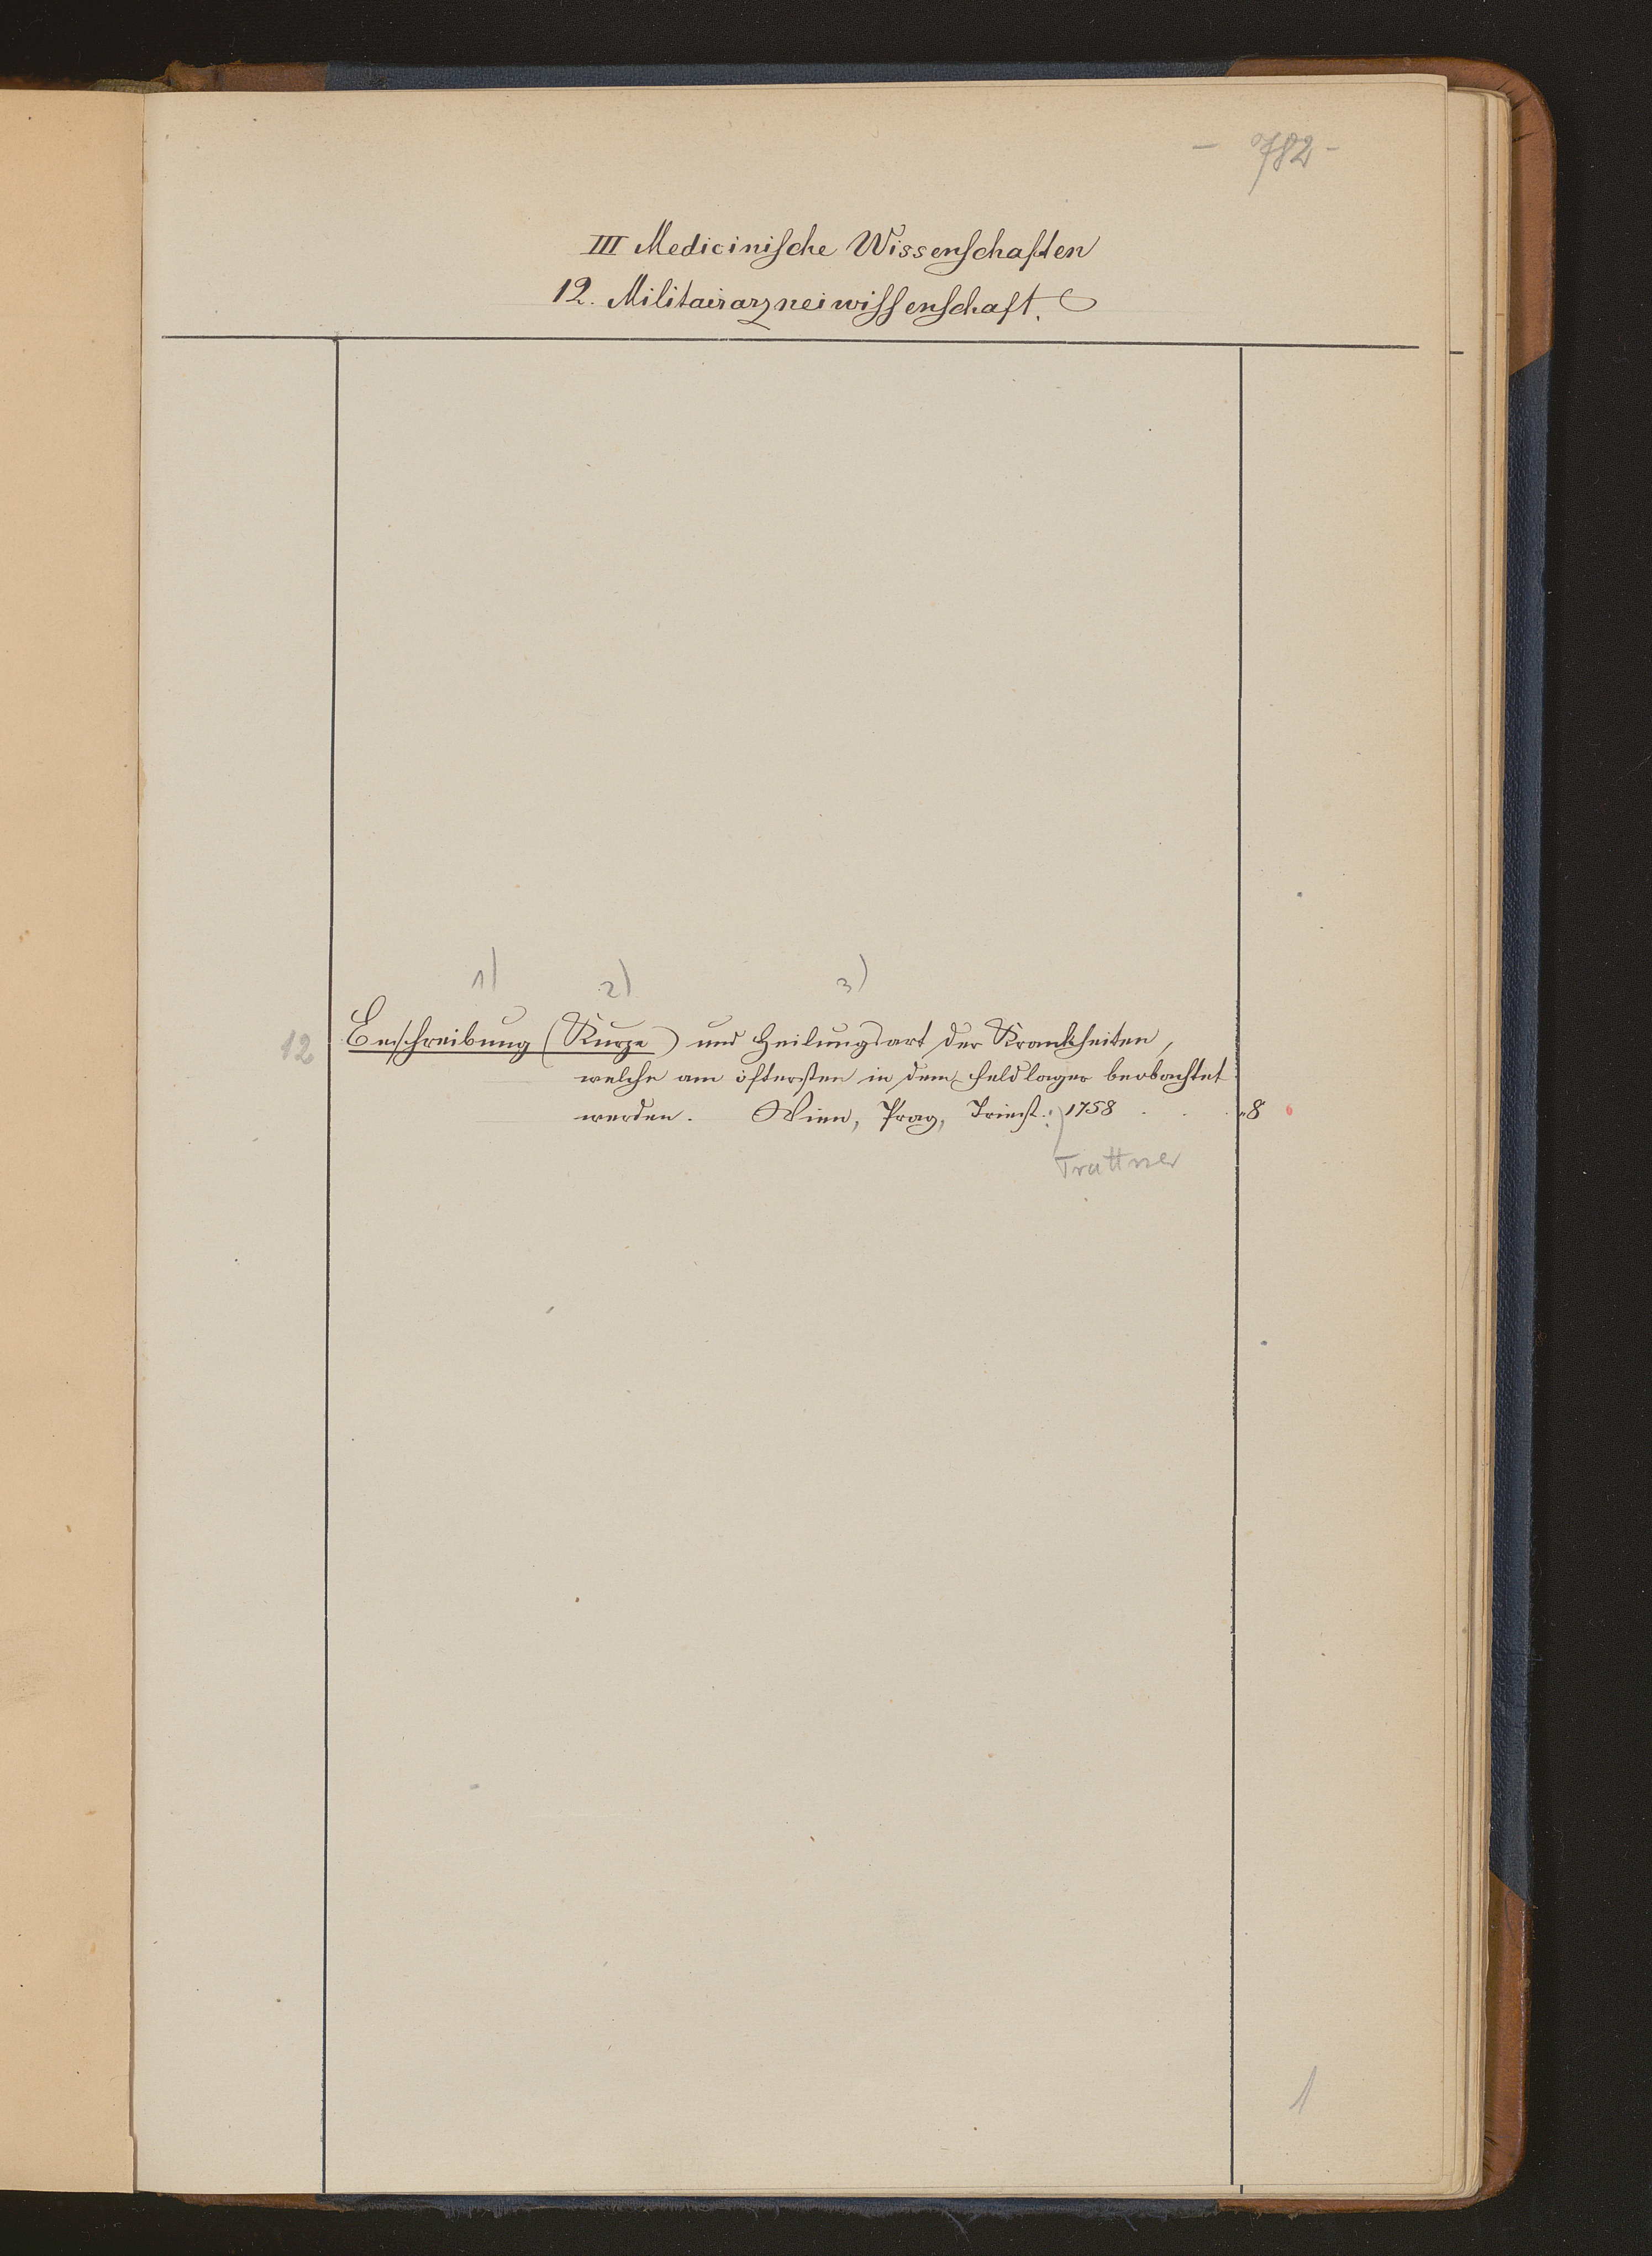 - 782 -
III Medicinische Wissenschaften
12. Militairarzneiwissenschaft.
1) 2) 3)
12 Beschreibung (Kurze) und Heilungsart der Krankheiten,
welche am öftersten in dem Feldlager beobachtet
werden. Wien, Prag, Triest: 1758 . . . 8
Trattner
1